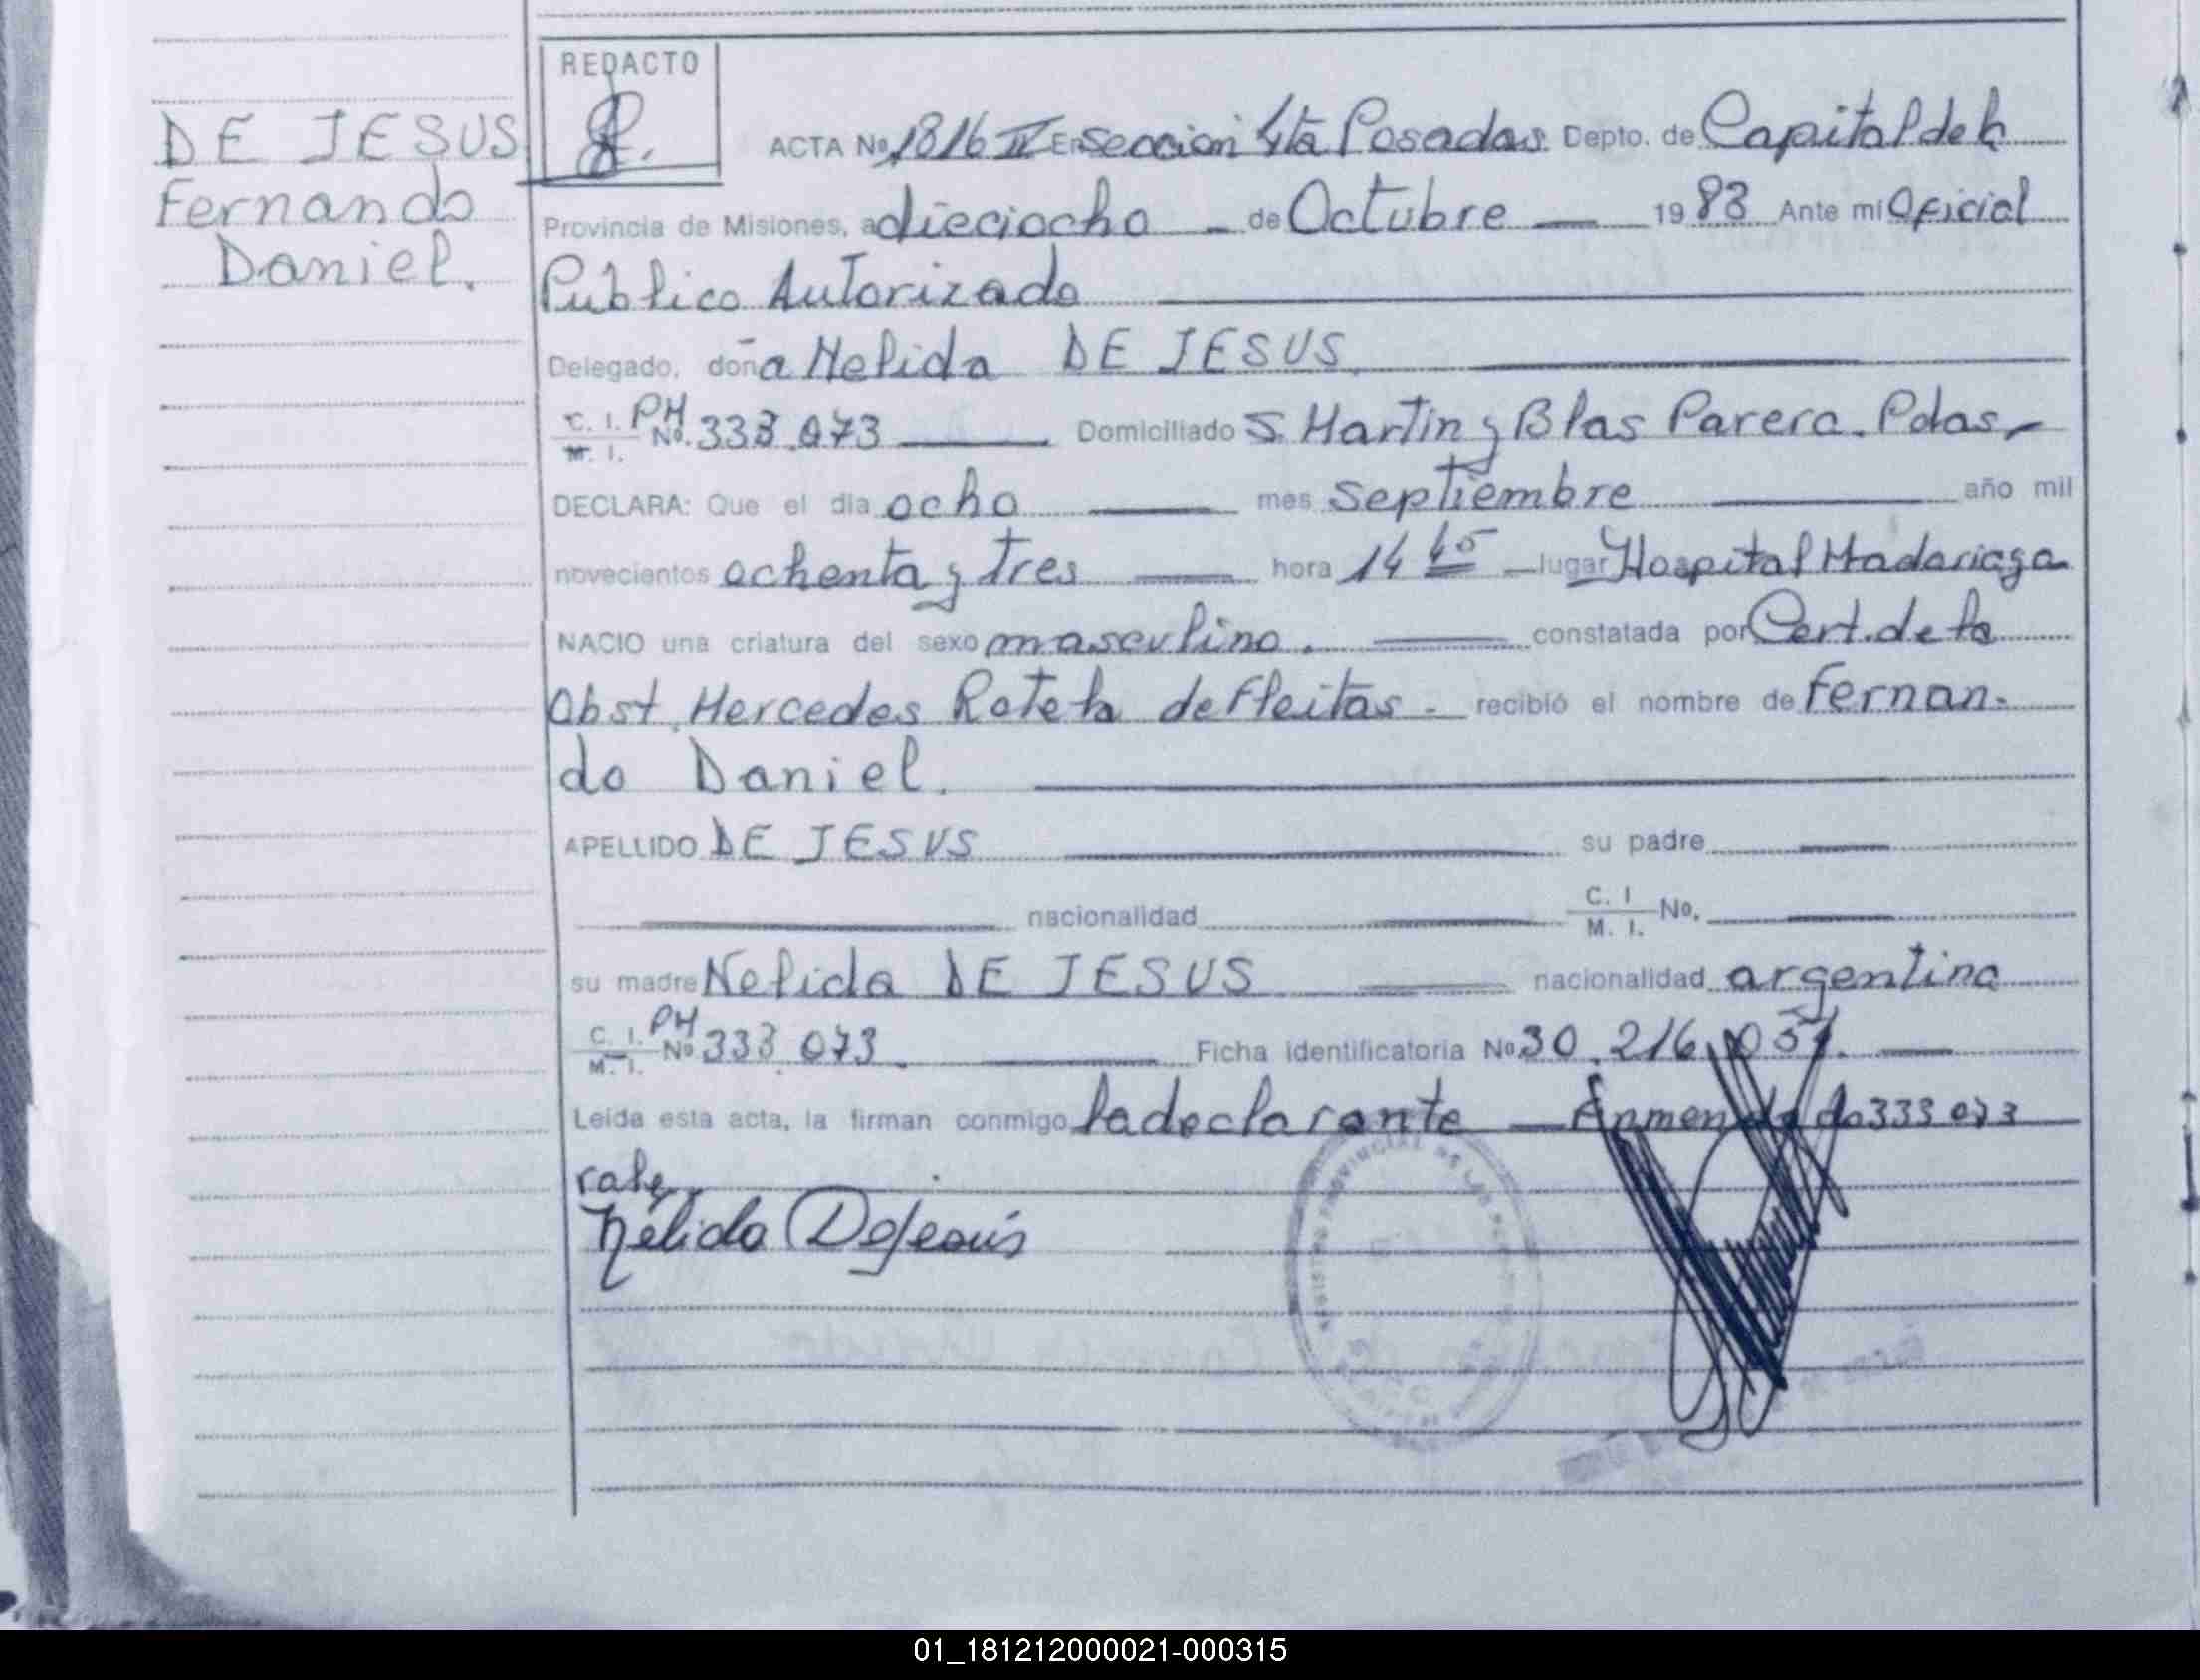 REDACTO
DE JESUS
Fernando
Daniel.
ACTA No. 1816 IV En Seccion 4ta Posadas Depto. de Capital de la
Provincia de Misiones, a dieciocho - de Octubre — 1983 Ante mi Oficial
Publico Autorizado
Delegado, doña Nelida DE JESUS.
C. I. M. I. PH No. 333.073 — Domiciliado S. Martin y Blas Parera. Pdas-
DECLARA: Que el dia ocho — mes septiembre — año mil
novecientos ochenta y tres — hora 14 45 — lugar Hospital Madariaga
NACIO una criatura del sexo masculino. — constatada por Cert. de la
Obst. Mercedes Rotela de Fleitas - recibió el nombre de Fernan-
do Daniel.
APELLIDO DE JESUS — su padre —
— nacionalidad — C. I M. I. No. —
su madre Nelida DE JESUS — nacionalidad argentina
C. I. M. I. PH No 333.073. — Ficha identificatoria No 30.216.051. —
Leida esta acta, la firman conmigo la declarante — Enmendado 333 073
vale.
Nélida DeJesús
01_181212000021-000315